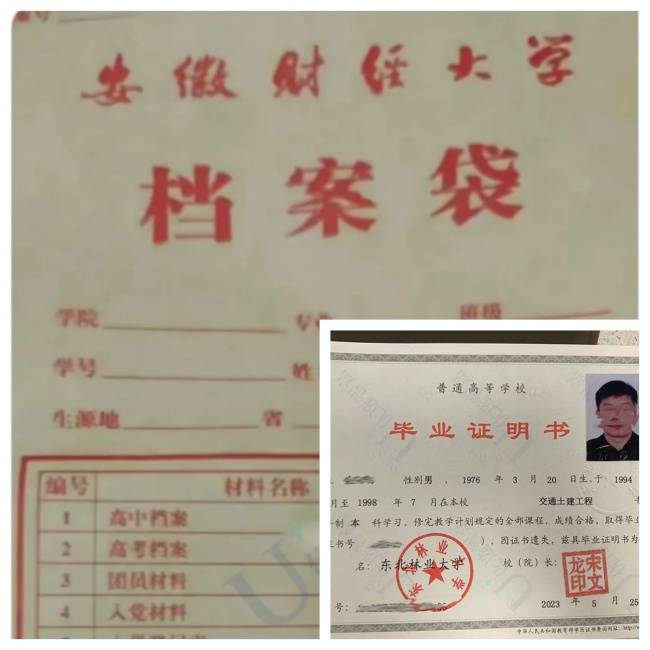 编号
安徽财经大学
档案袋
学院
班级
学号
生源地 省
编号 材料名称
1 高中档案
2 高考档案
3 团员材料
4 入党材料
普通高等学校
毕业证明书
性别男，1976年3月20日生,于1994
月至1998年7月在本校 交通土建工程
制 本 科学习，修完教学计划规定的全部课程，成绩合格，取得毕业
证书号 ，因证书遗失，兹具毕业证明书为
名：东北林业大学 校（院）长：
东北林业大学
宋文龙印
号： 2023年5月25
中华人民共和国教育部学历证书查询网址：http://